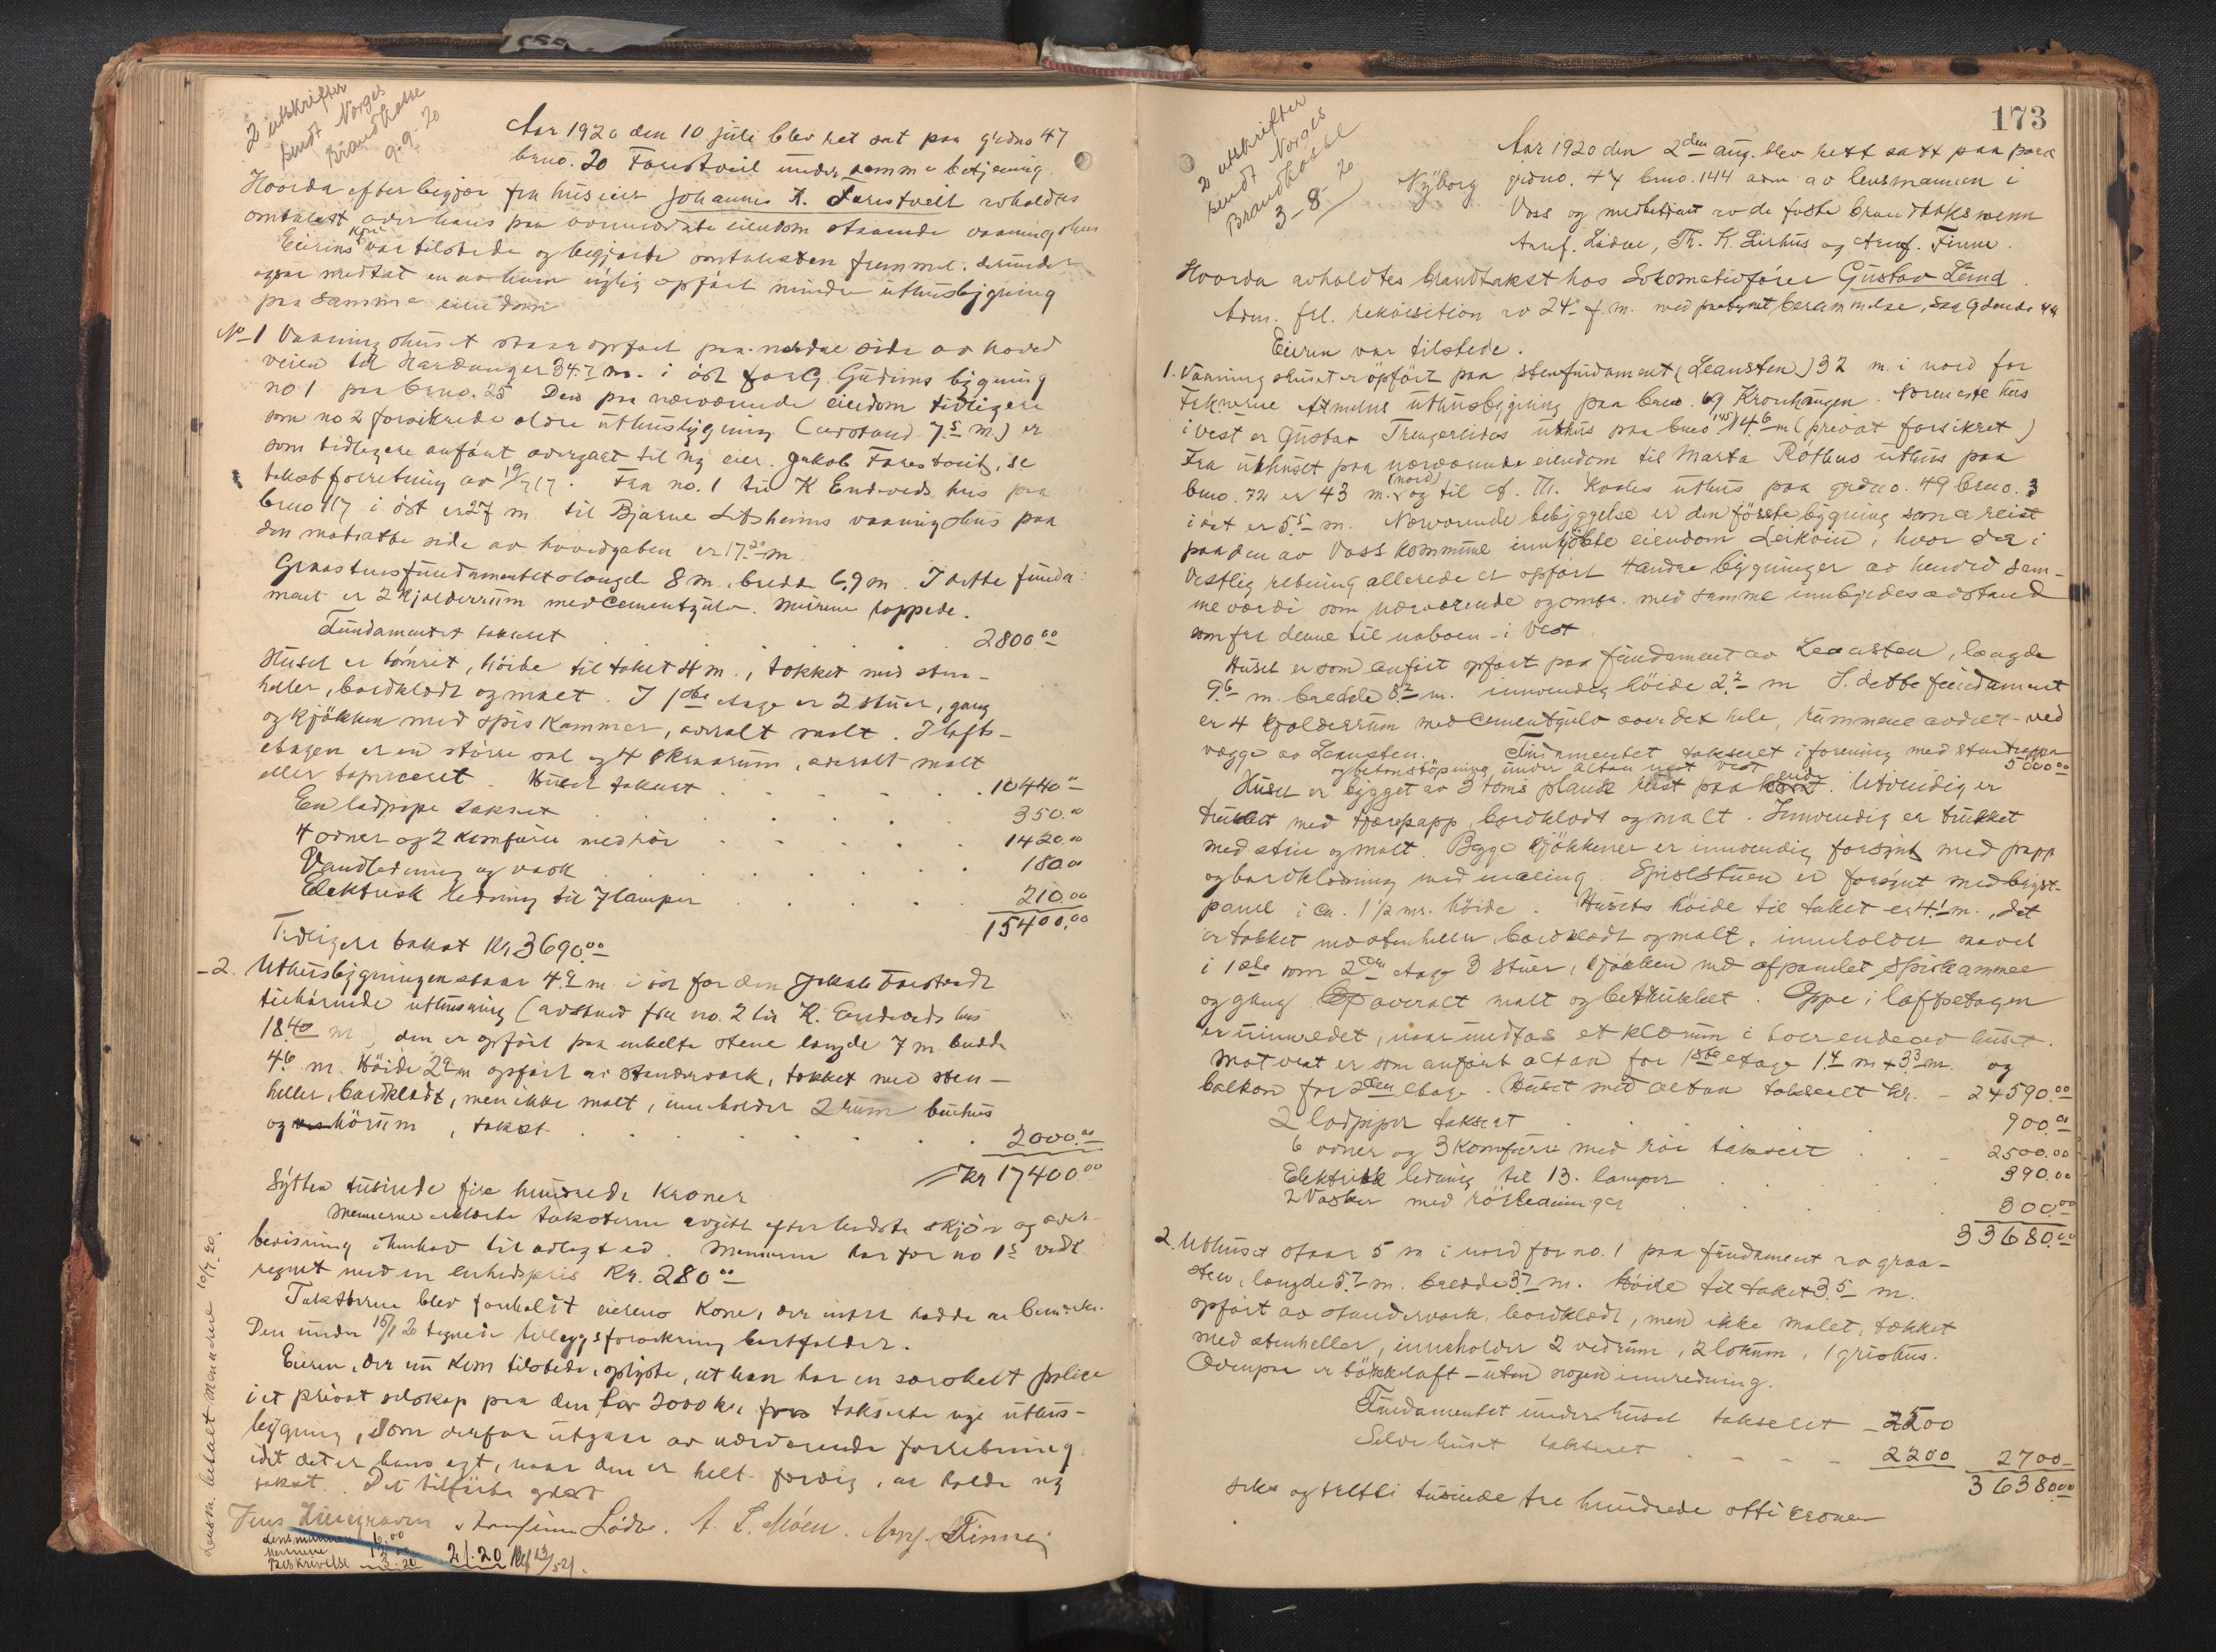 2 utskrifter
sendt Norges
Brandkasse
9-9-20
Aar 1920 den 10 juli blev ret sat paa g'rdno 47
brno. 20 Farestveit under samme betjening.
Hvorda efter begjær fra huseier Johannes K. Farestveit avholdtes
omtakst over hans paa ovennævnte eiendom staaende vaaningshus
Eierens kone var tilstede og begjærte omtaksten fremmet. derunder
ogsaa medtat en av ham nylig opført mindre uthusbygning
paa samme eiendom
No 1 Vaaningshuset staar opført paa nordre side av hoved
veien til Hardanger 34.7 m. i øst for G. Gudims bygning
no 1 paa brno. 25 Den paa nærværende eiendom tidligere
som no 2 forsikrede ældre uthusbygning (avstand 7.5 m.) er
som tidligere anført overgaat til ny eier. Jakob Farestveit, se
takstforretning av 19/7 17. Fra no. 1 til K. Endeveds hus paa
brno 117 i øst er 27 m. til Bjarne Litsheims vaaningshus paa
den motsatte side av hovedgaten er 17.20 m
Graastensfundamentets længde 8 m. bredde 6,9 m. I dette funda-
ment er 2 kjælderrum med cementgulv. Murene pappede.
Fundamentet takseret . . . 2800.00
Huset er tømret, høide til taket 4 m., tækket med sten-
heller, bordklædt og malt. I 1ste etage er 2 stuer, gang
og kjøkken med spiskammer, overalt malt. I lofts-
etagen er en større sal og 4 smaarum, overalt malt
eller tapiceret. Huset takseret . . . 10440.00
En ladpipe takseret . . . 350.00
4 ovner og 2 komfurer med rør . . . 1420.00
Vandledning og vask . . . 180.00
Elektrisk ledning til 7 lamper . . . 210.00
15400.00
Tidligere takst Kr 3690.00
- 2. Uthusbygningen staar 4.2 m i øst for den Jakob Farestveit
tilhørende uthusning (avstand fra no. 2 til K. Endeveds hus
18.40 m), den er opført paa enkelte stene længde 7 m bredde
4.6 m. Høide 2.9 m opført av standerverk, tækket med sten-
heller, bordklædt, men ikke malt, inneholder 2 rum buhus
og hörum, takst . . . 2000.00
Kr 17400.00
Sytten tusinde fire hundrede Kroner
Mennerne erklærte taksterne avgitt efter bedste skjøn og over-
bevisning i henhold til avlagt ed. Mennerne har for no 1's vedk.
regnet med en enhedspris Kr. 280.00
Taksterne blev forholdt eierens Kone, der intet hadde at bemerke.
Den under 15/1 20 tegnede tillægsforsikring bortfalder.
Eieren, der nu kom tilstede, oplyste, at han har en særskelt police
i et privat selskap paa den for 2000 kr. takserte nye uthus-
bygning, som derfor utgaar av nærværende forretning
idet det er hans agt, naar den er helt færdig, at holde ny
takst. Det tilførte godt
Jens Kinegraven Arnfinn Lødve. A. L. Møen. Arnf. Finne
Lensmannen 6.00
Mennene 12.00
Beskrivelse 3.20 21.20
Lensm. betalt mændene 10/7 20.
173
2 utskrifter
sendt Norges
Brandkasse
3-8-20
Nyborg
Aar 1920 den 2den aug. blev rett satt paa paa
grdno. 47 brno. 144 adm av lensmannen i
Voss og medbetjent av de faste brandtaksmenn
Arnf. Lødve, Th. K. Lirhus og Arnf. Finne.
Hvorda avholdtes brandtakst hos Lokomotivfører Gustav Lund
Adm. frl. rekvisition av 24 f.m. med paategnet berammelse,
Eieren var tilstede.
1. Vaaningshuset er opført paa stenfundament (Leansten) 32 m. i nord for
uthusbygning paa brno. 69 Kronhaugen. Nærmeste hus
i vest er Gustav Trengerlids uthus paa brno 145 14.6 m (privat forsikret)
Fra uthuset paa nærværende eiendom til Marta Røthes uthus paa
brno. 72 er 43 m. (nord) og til A. M. uthus paa grdno. 49 brno. 3
i øst er 5.5 m. Nærværende bebyggelse er den første bygning som er reist
paa den av Voss kommune innkjøbte eiendom Leikvin, hvor der i
vestlig retning allerede er opført 4 andre bygninger av henved sam-
me værdi som nærværende og omtr. med samme innbyrdes avstand
som fra denne til naboen i vest.
Huset er som anført opført paa fundament av Leansten, længde
9.6 m. bredde 8.2 m. innvendig høide 2.2 m I dette fundament
er 4 kjælderrum med cementgulv over det hele, rummene avdelt ved
vægge av Leansten. Fundamentet takseret i forening med stentrappe
og betonstøpning under altan mot vest 5000.00
Huset er bygget av 3 toms planke reist paa ende. Utvendig er
trukket med tjærepapp, bordklædt og malt. Innvendig er trukket
med strie og malt. Begge kjøkkener er innvendig forsynt med papp
og bordklædning med maling. Spisestuen er forsynt med bryst-
panel i ca. 1 1/2 mr. høide. Husets høide til taket er 4.1 m., det
er tækket med stenheller, bordklædt og malt, inneholder saavel
i 1ste som 2den etage 3 stuer, kjøkken med afpanelet spiskammer
og gang overalt malt og betrukket. Oppe i loftsetagen
er uinnredet, naar undtas et klærum i hver ende av huset.
Mot vest er som anført altan for 1ste etage 1.4 m x 3.3 m. og
balkon for 2den etage. Huset med altan takseret Kr. - 24590.00
2 ladpiper takseret . . . 900.00
6 ovner og 3 komfurer med rør takseret . . . 2500.00
Elektrisk ledning til 13. lamper . . . 390.00
2 Vasker med rørledninger . . . 300.00
33680.00
2. Uthuset staar 5 m i nord for no. 1 paa fundament av graa-
sten, længde 5.7 m. bredde 3.7 m. Høide til taket 3.5 m.
opført av standerverk, bordklædt, men ikke malet, tækket
med stenheller, inneholder 2 vedrum, 2 lokum, 1 grishus.
Ovenpaa er tørkeloft - uten nogen innredning.
Fundamentet under huset takseret - 500
Selve huset takseret . . . 2200 2700 -
36380.00
seks og tretti tusinde tre hundrede otti kroner